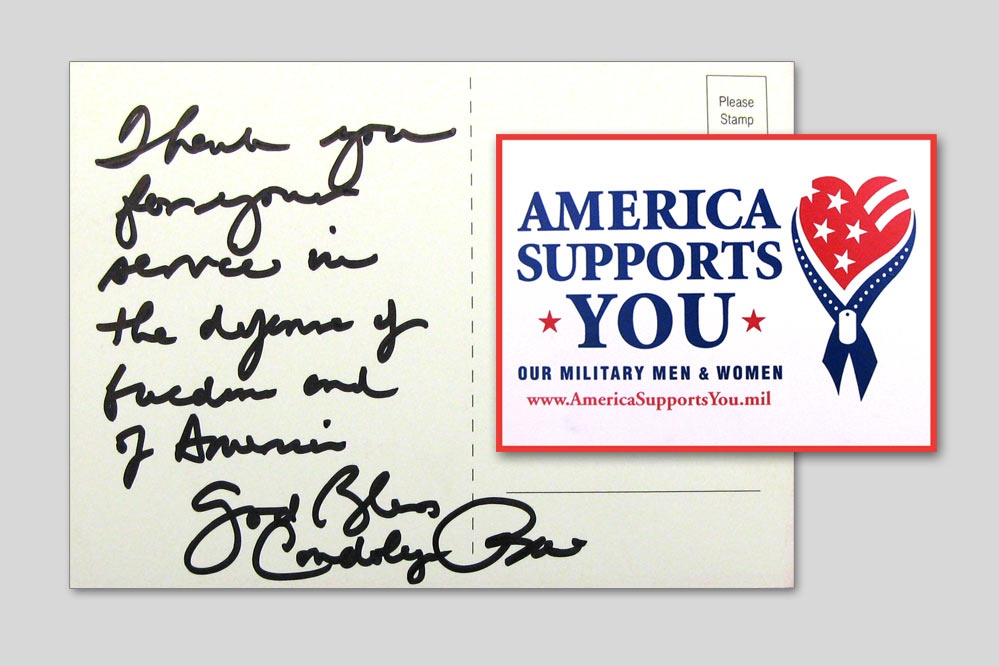 Thank you
for your
service in
the defense of
freedom and
of America
God Bless
Condoleezza Rice
Please
Stamp
AMERICA
SUPPORTS
YOU
OUR MILITARY MEN & WOMEN
www.AmericaSupportsYou.mil